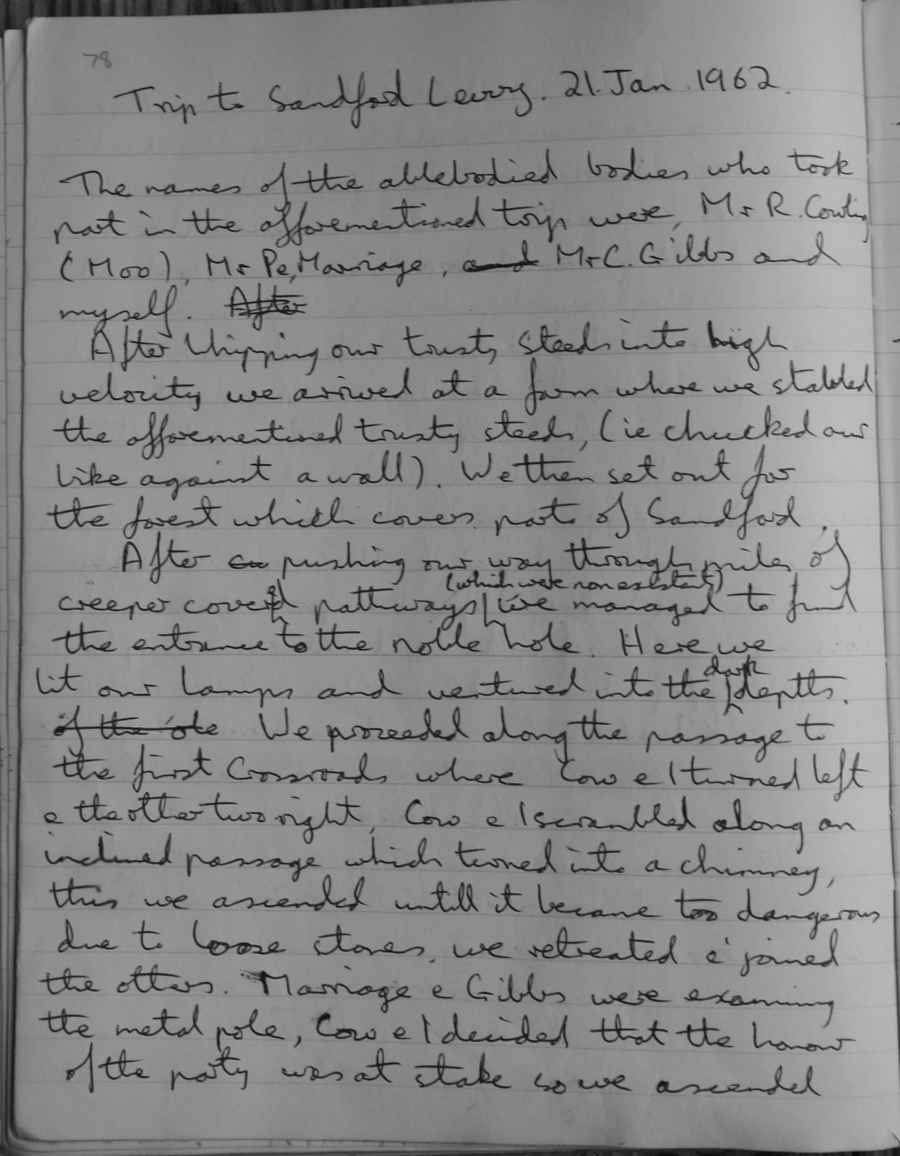 78
Trip to Sandford Levvy. 21. Jan. 1962.
The names of the ablebodied bodies who took
part in the afforementioned trip were, Mr R. Cowling
(Moo), Mr Pe, Marriage, and Mr C. Gibbs and
myself. After
After Whipping our trusty steeds into high
velocity we arrived at a farm where we stabled
the afforementioned trusty steeds, (ie chucked our
bike against a wall). We then set out for
the forest which covers parts of Sandford.
After pushing our way through miles of
(which were nonexistant)
creeper covered pathways, we managed to find
the entrance to the noble hole. Here we
dark
lit our lamps and ventured into the depths.
of the We proceeded along the passage to
the first Crossroads where Cow & I turned left
& the other two right, Cow & I scrambled along an
inclined passage which turned into a chimney,
this we ascended untill it became too dangerous
due to loose stones, we retreated & joined
the others. Marriage & Gibbs were examining
the metal pole, Cow & I decided that the honour
of the party was at stake so we ascended